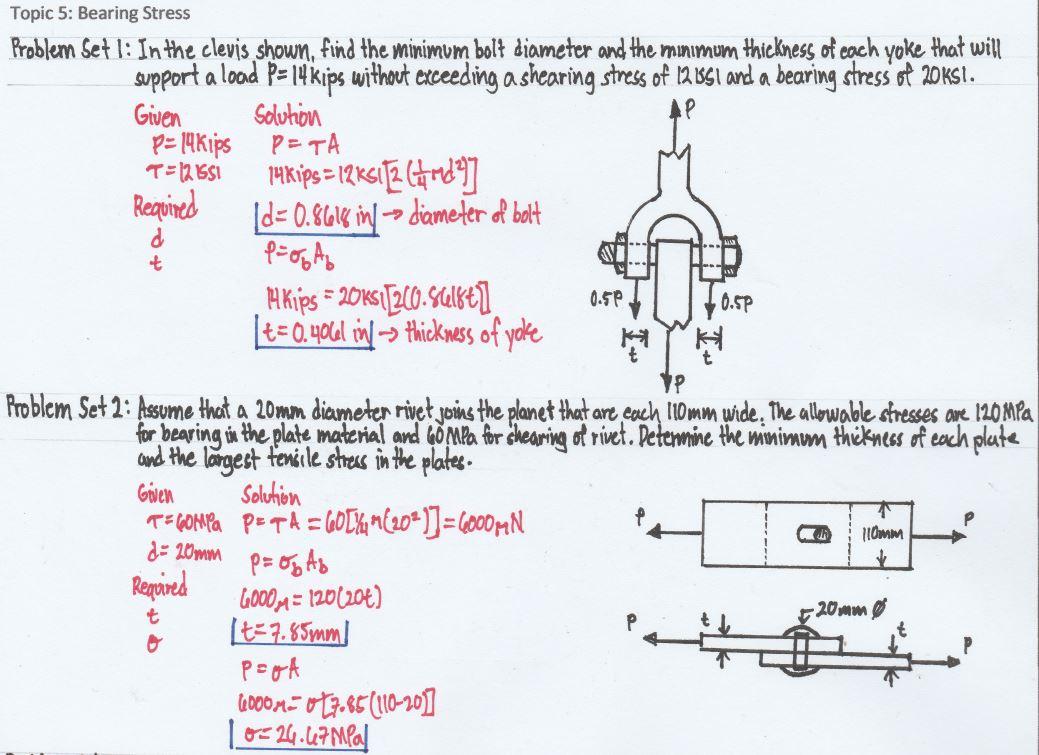 Topic 5: Bearing Stress
Problem Set 1: In the clevis shown, find the minimum bolt diameter and the minimum thickness of each yoke that will
support a load P=14kips without exceeding a shearing stress of 12 ksi and a bearing stress of 20 ksi.
Given
P=14Kips
τ=12 ksi
Required
d
t
Solution
P=τA
14Kips=12ksi[2(¼πd²)]
d=0.8618 in → diameter of bolt
P=σb Ab
14Kips=20ksi[2(0.8618t)]
t=0.4061 in → thickness of yoke
P
0.5P
0.5P
t
t
P
Problem Set 2: Assume that a 20mm diameter rivet joins the planet that are each 110mm wide. The allowable stresses are 120MPa
for bearing in the plate material and 60MPa for shearing of rivet. Determine the minimum thickness of each plate
and the largest tensile stress in the plates.
Given
τ=60MPa
d=20mm
Required
t
σ
Solution
P=τA=60[¼π(20²)]=6000πN
P=σb Ab
6000π=120(20t)
t=7.85mm
P=σA
6000π=σ[7.85(110-20)]
σ=26.67MPa
P
110mm
P
20mm Ø
P
t
t
P